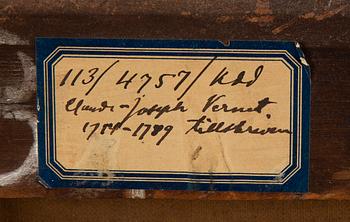 113/4757/Add
Claude-Joseph Vernet
1714-1789 tillskriven